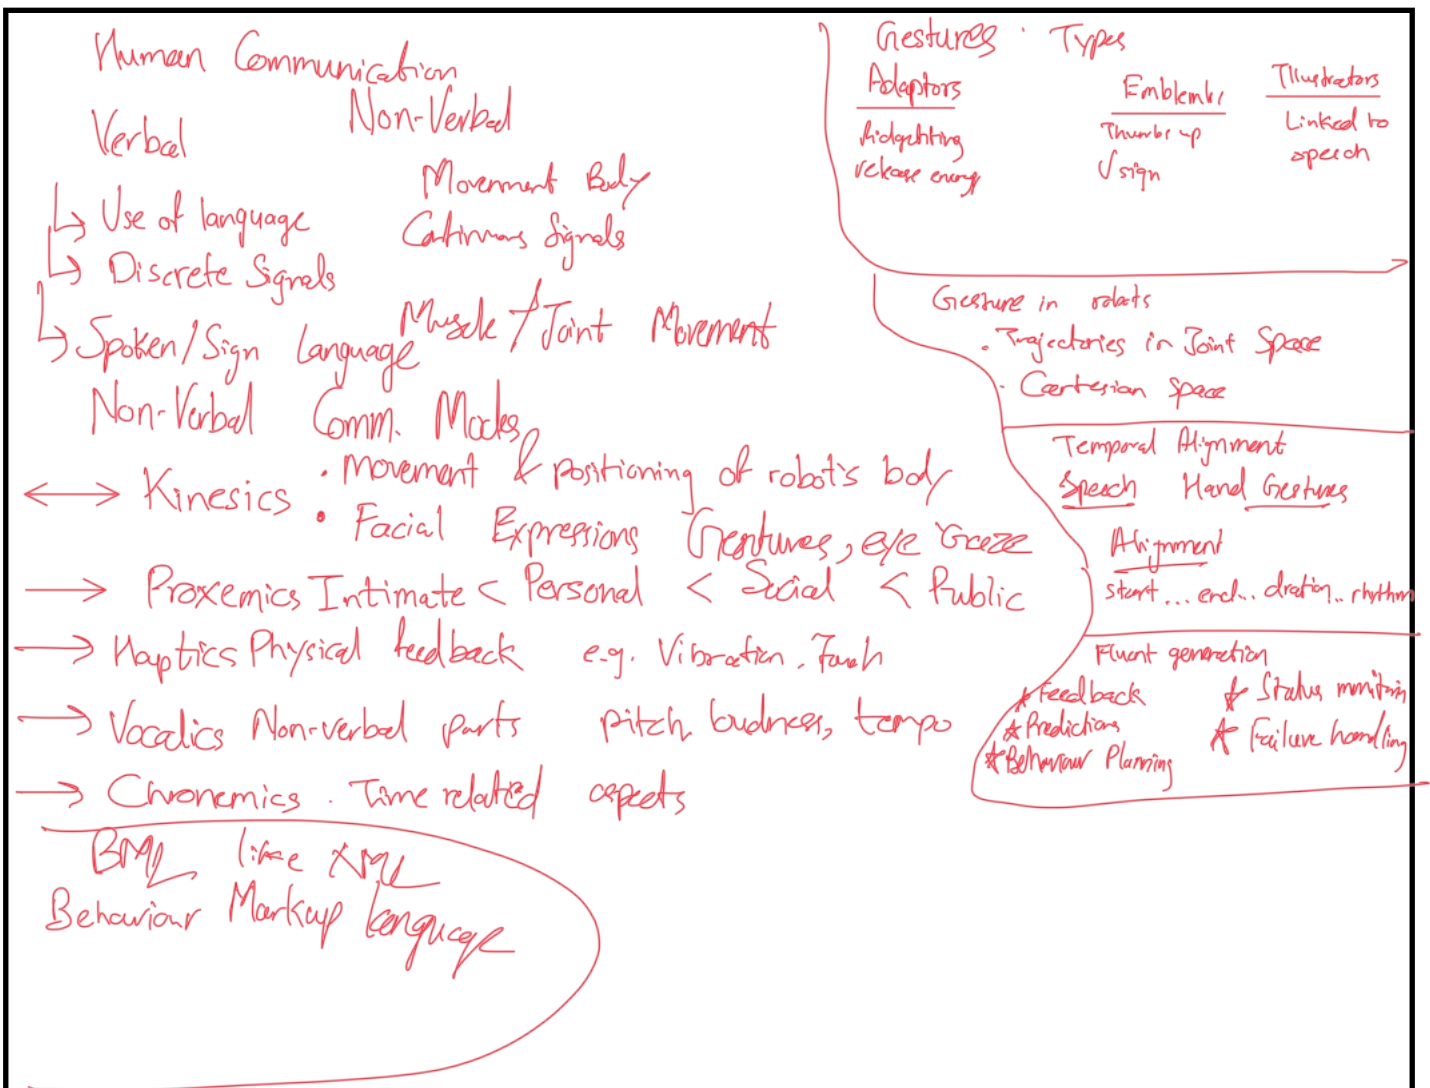 Human Communication
Verbal
Non-Verbal
Use of language
Discrete Signals
Spoken/Sign Language
Movenment Body
Continuous Signals
Muscle / Joint Movement
Non-Verbal Comm. Modes
Kinesics • Movement & positioning of robot's body
• Facial Expressions Gestures, eye Gaze
Proxemics Intimate < Personal < Social < Public
Haptics Physical feedback e.g. Vibration, Touch
Vocalics Non-verbal parts pitch, loudness, tempo
Chronemics . Time related aspects
BML like XML
Behaviour Markup Language
Gestures . Types
Adaptors
fidgehting
release energy
Emblems
Thumbs up
√ sign
Illustrators
Linked to
speech
Gesture in robots
. Trajectories in Joint Space
. Cartesian Space
Temporal Alignment
Speech Hand Gestures
Alignment
start ... end... dration.. rhythm
Fluent generation
* Feedback
* Predictions
* Behaviour Planning
* Status monitorin
* Failure handling